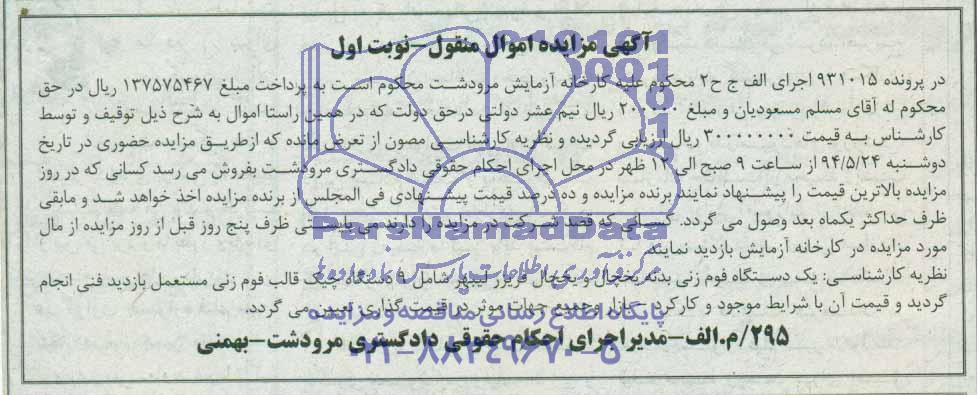 آگهی مزایده اموال منقول-نوبت اول
در پرونده ۹۳۱۰۱۵ اجرای الف ج ح۲ محکوم علیه کارخانه آزمایش مرودشت محکوم است به پرداخت مبلغ ۱۳۷۵۷۵۴۶۷ ریال در حق
محکوم له آقای مسلم مسعودیان و مبلغ ریال نیم عشر دولتی درحق دولت که در همین راستا اموال به شرح ذیل توقیف و توسط
کارشناس به قیمت ۳۰۰۰۰۰۰۰۰ ریال ارزیابی گردیده و نظریه کارشناسی مصون از تعرض مانده که ازطریق مزایده حضوری در تاریخ
دوشنبه ۹۴/۵/۲۴ از ساعت ۹ صبح الی ۱۲ ظهر در محل اجرای احکام حقوقی دادگستری مرودشت بفروش می رسد کسانی که در روز
مزایده بالاترین قیمت را پیشنهاد نمایند برنده مزایده و ده درصد قیمت پیشنهادی فی المجلس از برنده مزایده اخذ خواهد شد و مابقی
ظرف حداکثر یکماه بعد وصول می گردد. کسانی که قصد شرکت در مزایده را دارند می بایستی ظرف پنج روز قبل از روز مزایده از مال
مورد مزایده در کارخانه آزمایش بازدید نمایند.
نظریه کارشناسی: یک دستگاه فوم زنی بدنه یخچال و یخچال فریزر لیبهر شامل ۹ دستگاه چیک قالب فوم زنی مستعمل بازدید فنی انجام
گردید و قیمت آن با شرایط موجود و کارکرد و بازار وجمیع جهات موثر در قیمت گذاری تعیین می گردد.
۲۹۵/م.الف-مدیراجرای احکام حقوقی دادگستری مرودشت-بهمنی
ParsNamadData
پایگاه اطلاع رسانی مناقصه و مزایده
۰۲۱-۸۸۳۴۹۶۷۰-۵